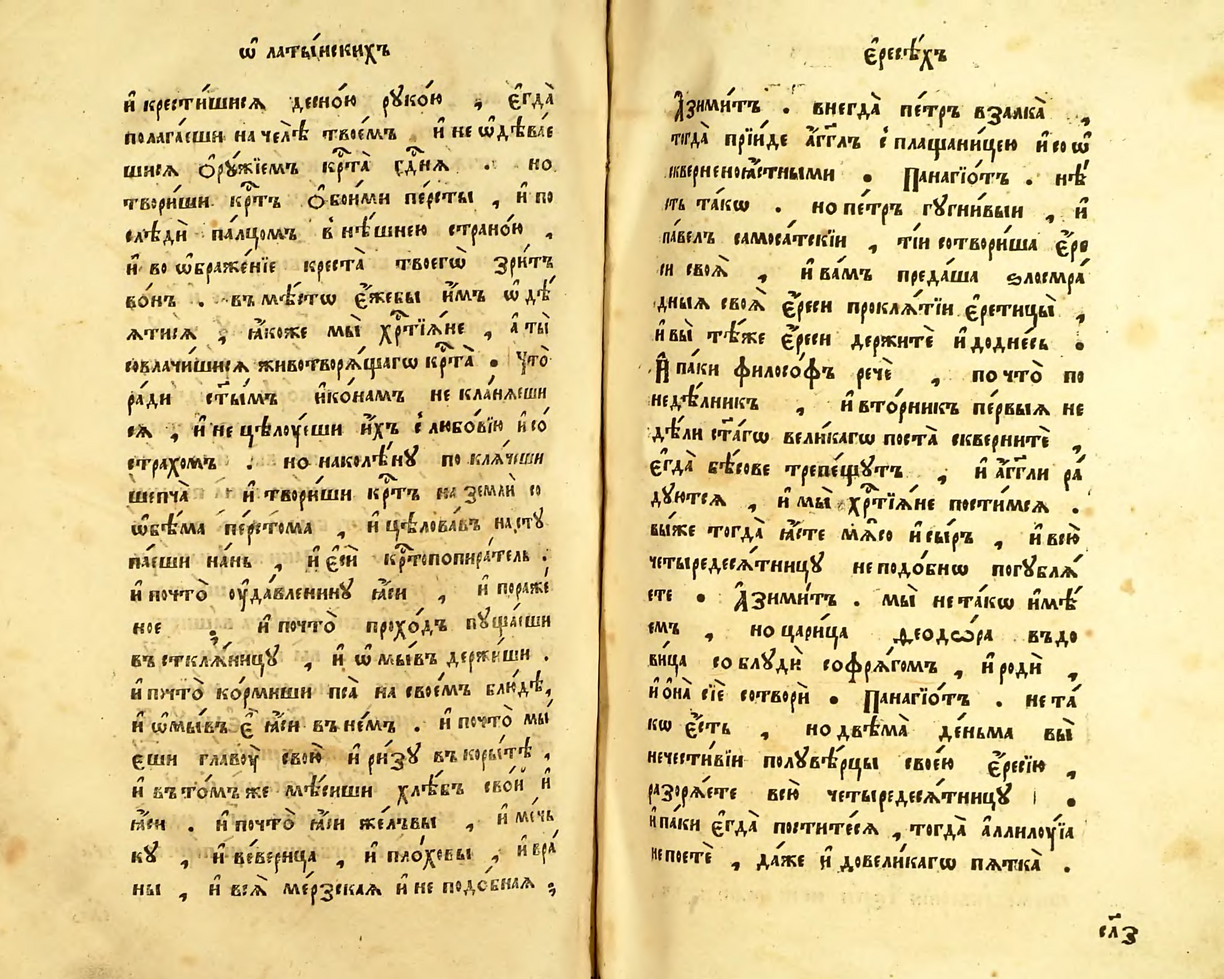 ѿ латы́нскихъ
и҆ крести́шисѧ десно́ю рꙋко́ю , є҆гда̀
полага́еши на челѣ̀ твое́мъ и҆ не ѡ҆дѣва́е
шисѧ ѻ҆рꙋ́жїемъ крⷭ҇та̀ гдⷭ҇нѧ . но
твори́ши крⷭ҇тъ ѻ҆бои́ми пе́рсты , и҆ по
слѣдѝ па́лцомъ внѣ́шнею страно́ю ,
и҆ во ѡ҆браже́нїе креста̀ твоегѡ̀ зри́тъ
во́нъ . въ мѣ́стѡ є҆́жебы и҆́мъ ѡ҆дѣ́
ѧтисѧ ; ꙗ҆́коже мы̀ хрⷭ҇тїѧ́не , а҆ ты̀
совлачи́шисѧ животворѧ́щагѡ крⷭ҇та̀ . Что̀
ра́ди ст҃ы́мъ и҆ко́намъ не кла́нѧеши
сѧ , и҆ не цѣлꙋ́еши и҆́хъ с̾ любо́вїю и҆ со
стра́хомъ . но наколѣ́нꙋ поклѧ́чеши
шепча̀ и҆ твори́ши крⷭ҇тъ на землѝ со
ѡ҆бѣ́ма персто́ма , и҆ цѣлова́въ настꙋ
па́еши на́нь , и҆ є҆сѝ крⷭ҇топопира́тель .
и҆ почто̀ оу҆да́вленинꙋ ꙗ҆́си , и҆ пораже́
ное ; и҆ почто̀ прохо́дъ пꙋща́еши
въ сткла́ницꙋ , и҆ ѡ҆мы́въ держи́ши .
и҆ пчто̀ ко́рмиши пса̀ на свое́мъ блю́дѣ,
и҆ ѡ҆мы́въ є҆̀ ꙗ҆́си въ не́мъ . и҆ почто̀ мы́
еши главоу̀ свою̀ и҆ ри́зꙋ въ коры́тѣ ,
и҆ въ то́мъ же мѣ́сиши хлѣ́бъ сво́й и҆
ꙗ҆́си . и҆ почто̀ ꙗ҆́си же́лъвы , и҆ ме́чь
кꙋ , и҆ ве́верица , и҆ пло́ховы , и҆ вра́
ны , и҆ всѧ̀ ме́рзскаѧ и҆ не подо́бнаѧ ;
є҆́ресѣхъ
А҆зими́тъ . внегда̀ пе́тръ взалка̀ ,
тогда̀ прїи́де а҆́гг҃лъ с̾ плащани́цею и҆ со ѡ
скверненоꙗ҆́стными . Панагїо́тъ . нѣ́
сть та́кѡ . но пе́тръ гꙋгни́выи , и҆
па́велъ самоса́тскїи , ті́и сотвори́ша є҆́ре
си своѧ̀ , и҆ ва́мъ преда́ша ѕлосмра́
дныѧ своѧ̀ є҆́реси проклѧ́тїи є҆ретицы̀ ,
и҆ вы̀ тѣ́же є҆́реси держитѐ и҆ додне́сь .
И҆ па́ки філосо́фъ речѐ , по что̀ по
недѣ́лникъ , и҆ вто́рникъ пе́рвыѧ не
дѣ́ли ст҃а́гѡ вели́кагѡ поста̀ скве́рните ,
є҆гда̀ бѣ́сове трепе́щꙋтъ , и҆ а҆́гг҃ли ра́
дꙋютсѧ , и҆ мы̀ хрⷭ҇тїѧ́не пости́мсѧ .
вы́же тогда̀ ꙗ҆́сте мѧ́со и҆ сы́ръ , и҆ всю̀
четыредесѧ́тницꙋ не подо́бнѡ погꙋблѧ́
ете . А҆зими́тъ . мы̀ не та́кѡ и҆мѣ́
емъ , но цари́ца Ѳеодѡ́ра въдо
ви́ца со блꙋдѝ софрѧ́гомъ , и҆ родѝ ,
и҆ ѻ҆на̀ сїѐ сотворѝ . Панагїо́тъ . не та́
кѡ є҆́сть , но двѣма̀ де́ньма вы̀
нечести́вїи полꙋвѣ́рцы свое́ю є҆́ресїю ,
разорѧ́ете всю̀ четыредесѧ́тницꙋ .
и҆ па́ки є҆гда̀ пости́тесѧ , тогда̀ а҆ллилоу́їа
непоетѐ , да́же и҆ довели́кагѡ пѧтка̀ .
сл҃з